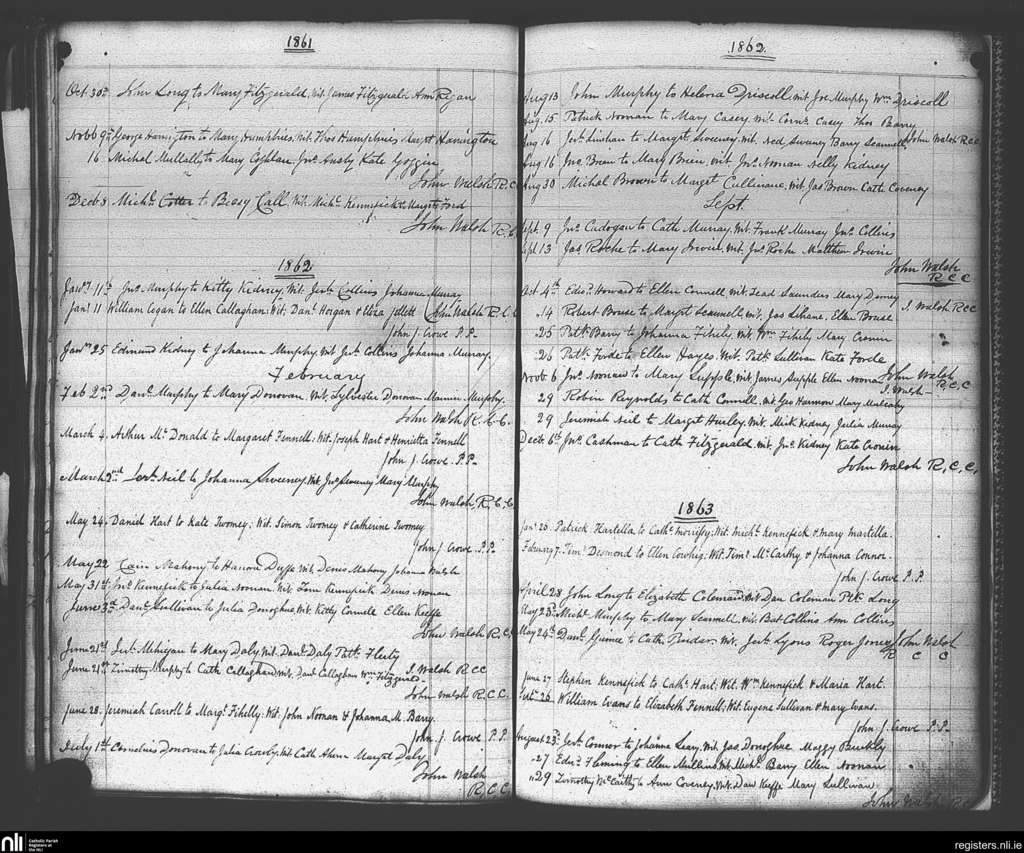 1861
Oct. 30th John Long to Mary Fitzgerald, Wit. James Fitzgerald Ann Regan
Novb 9th George Harrington to Mary Humphries, Wit. Thos Humphries Margt Harrington
16 Michal to Mary Coghlan Jno. Kate Goggin
John Walsh R.C.
Decb 3 Michl. Cotter to Bessy Call. Wit. Michl. Kennefick & Margt Ford
John Walsh R.C.
1862
Jany. 11th Jno. Murphy to Kitty Kidney, Wit. Jerh. Collins Johanna Murray
Jany. 11 William Cogan to Ellen Callaghan; Wit; Danl. Horgan & Eliza Jellett John Walsh R.C.C
John J Crowe P.P.
Jany 25 Edmund Kidney to Johanna Murphy, Wit. Jerh. Collins Johanna Murray,
February
Feb 2nd Danl. Murphy to Mary Donovan, Wit, Sylvester Donovan Murphy.
John Walsh R.C.C.
March 4. Arthur Mc Donald to Margaret Fennell; Wit. Joseph Hart & Henrietta Fennell
John J. Crowe P.P.
March 2nd Neil to Johanna Sweeney, Wit Jno Sweeney Mary Murphy
John Walsh, R.C.C
May 24. Daniel Hart to Kate Twomey; Wit. Simon Twomey & Catherine Twomey
John J Crowe P.P.
May 22 Mahony to Duffe Wit, Denis Mahony Johanna Walsh
May 31st Jno. Kennefick to Julia Noonan, Wit. Tom Kennefick Denis Noonan
June 3rd Danl. Sullivan to Julia Donoghue, Wit. Kitty Connell Ellen Keeffe
John Walsh R.C.
June 21st Jerh. Mehigan to Mary Daly, Wit. Danl. Daly Patk. Flerty
J. Walsh RCC
June 21st Timothy Murphy to Cath Callaghan, Wit. Danl Callaghan Wm. Fitzgerald
John Walsh R.C.C.
June 28. Jeremiah Carroll to Margt. Fihelly; Wit. John Noonan & Johanna M. Barry.
John J. Crowe P.P.
July 1st Cornelius Donovan to Julia Crowly. Wit. Cath Ahern Margt Daly
John Walsh
R C C
1862.
Aug 13 John Murphy to Helena Driscoll Wit Joe Murphy Wm. Driscoll
Aug. 15 Patrick Noonan to Mary Casey, Wit. Corns. Casey Thos Barry
Aug 16 Jerh. Linehan to Margt. Sweeney. Wit. Ned. Sweney Barry Scannell John Walsh R.C.C.
Aug 16 Jno. Brien to Mary Brien Wit, Jno. Noonan Nelly Kidney
Aug 30 Michal Brown to Margt Cullinane, Wit. Jas Brown Cath. Coveney
Sept.
Sept. 9 Jno. Cadogan to Cath Murray, Wit. Frank Murray Jno. Collins
Sept 13 Jas. Roche to Mary Irwin, Wit. Jno. Roche Matthew Irwin
John Walsh
R C C
Oct 4th Edwd. Howard to Ellen Connell, Wit. Saunders Mary
14 Robert Bouse to Margt Scannell, Wit. Jas Lehane, Ellen Bouse J. Walsh RCC
25 Patk. Barry to Johanna Fihily, Wit. Wm. Fihily Mary Cronin
26 Patk. Forde to Ellen Hayes, Wit. Patk. Sullivan Kate Forde
Novb 6 Jno. Noonan to Mary Supple, Wit, James Supple Ellen Noonan John Walsh R.C.C
J. Walsh
29 Robin Reynolds to Cath Connell, Wit. Geo Harmon Mary
29 Jeremiah Neil to Margt Hurley. Wit. Mick Kidney Julia Murray
Decb 6th Jno. Cashman to Cath Fitzgerald, Wit. Jno. Kidney Kate Cronin
John Walsh R,C,C,
1863
Jany 26. Patrick Martella to Cathe. Morrissy; Wit. Michl. Kennefick & Mary Martella.
Februay 7. Timy. Desmond to Ellen Cowhig. Wit. Timy. Mc.Carthy & Johanna Connor.
John J. Crowe P.P.
April 28 John Long to Elizabeth Coleman, Wit Dan Coleman Patk Long
May 23rd Michl. Murphy to Mary Scannell, Wit. Bat Collins Ann Collins
May 24th Danl. Guinee to Cath Rider, Wit, Jerh. Lyons Roger Jones John Walsh
R C C
June 27 Stephen Kennefick to Cathe. Hart; Wit. Wm. Kennefick & Maria Hart.
26. William Evans to Elizabeth Fennell; Wit. Eugene Sullivan & Mary Evans.
John J Crowe P.P.
August 23rd Jerh. Connor to Johanna Leary, Wit, Jas. Donoghue Maggy Buckly
27 Edwd. Fleming to Ellen Mullins, Wit. Michl. Barry Ellen Noonan
29 Timothy McCarthy to Ann Coveney, Wit. Dan Keeffe Mary Sullivan
John Walsh R.C
nli Catholic Parish
Registers at
the NLI
registers.nli.ie